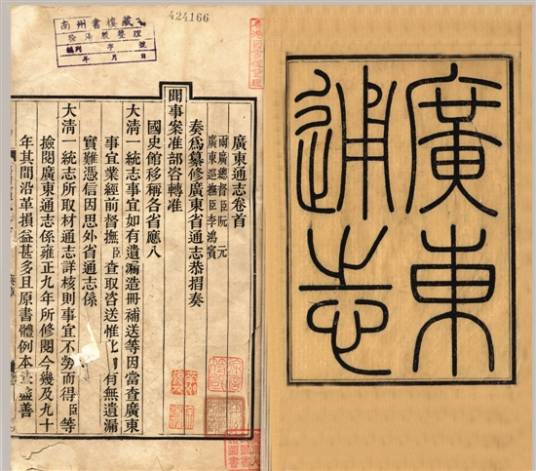 廣東
通志
424166
南州書樓藏
徐湯殷整理
編列 字 號
年 月 日
廣東通志卷首
兩廣總督臣阮元
廣東巡撫臣李鴻賓
奏爲纂修廣東省通志恭摺奏
聞事案准部咨轉准
國史館移稱各省應入
大清一統志事宜如有遺漏造冊補送等因當查廣東
事宜業經前督撫臣查取咨送惟有無遺漏
實難憑信因思外省通志係
大清一統志所取材通志詳核則事宜不勞而得臣等
檢閱廣東通志係雍正九年所修閱今幾及九十
年其間沿革損益甚多且原書體例本未盡善